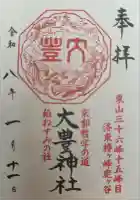 奉拝
東山三十六峰十五峰目
洛東椿ヶ峰鹿ヶ谷
大豊
京都哲学の道
大豊神社
狛ねずみの社
令和八年一月十一日